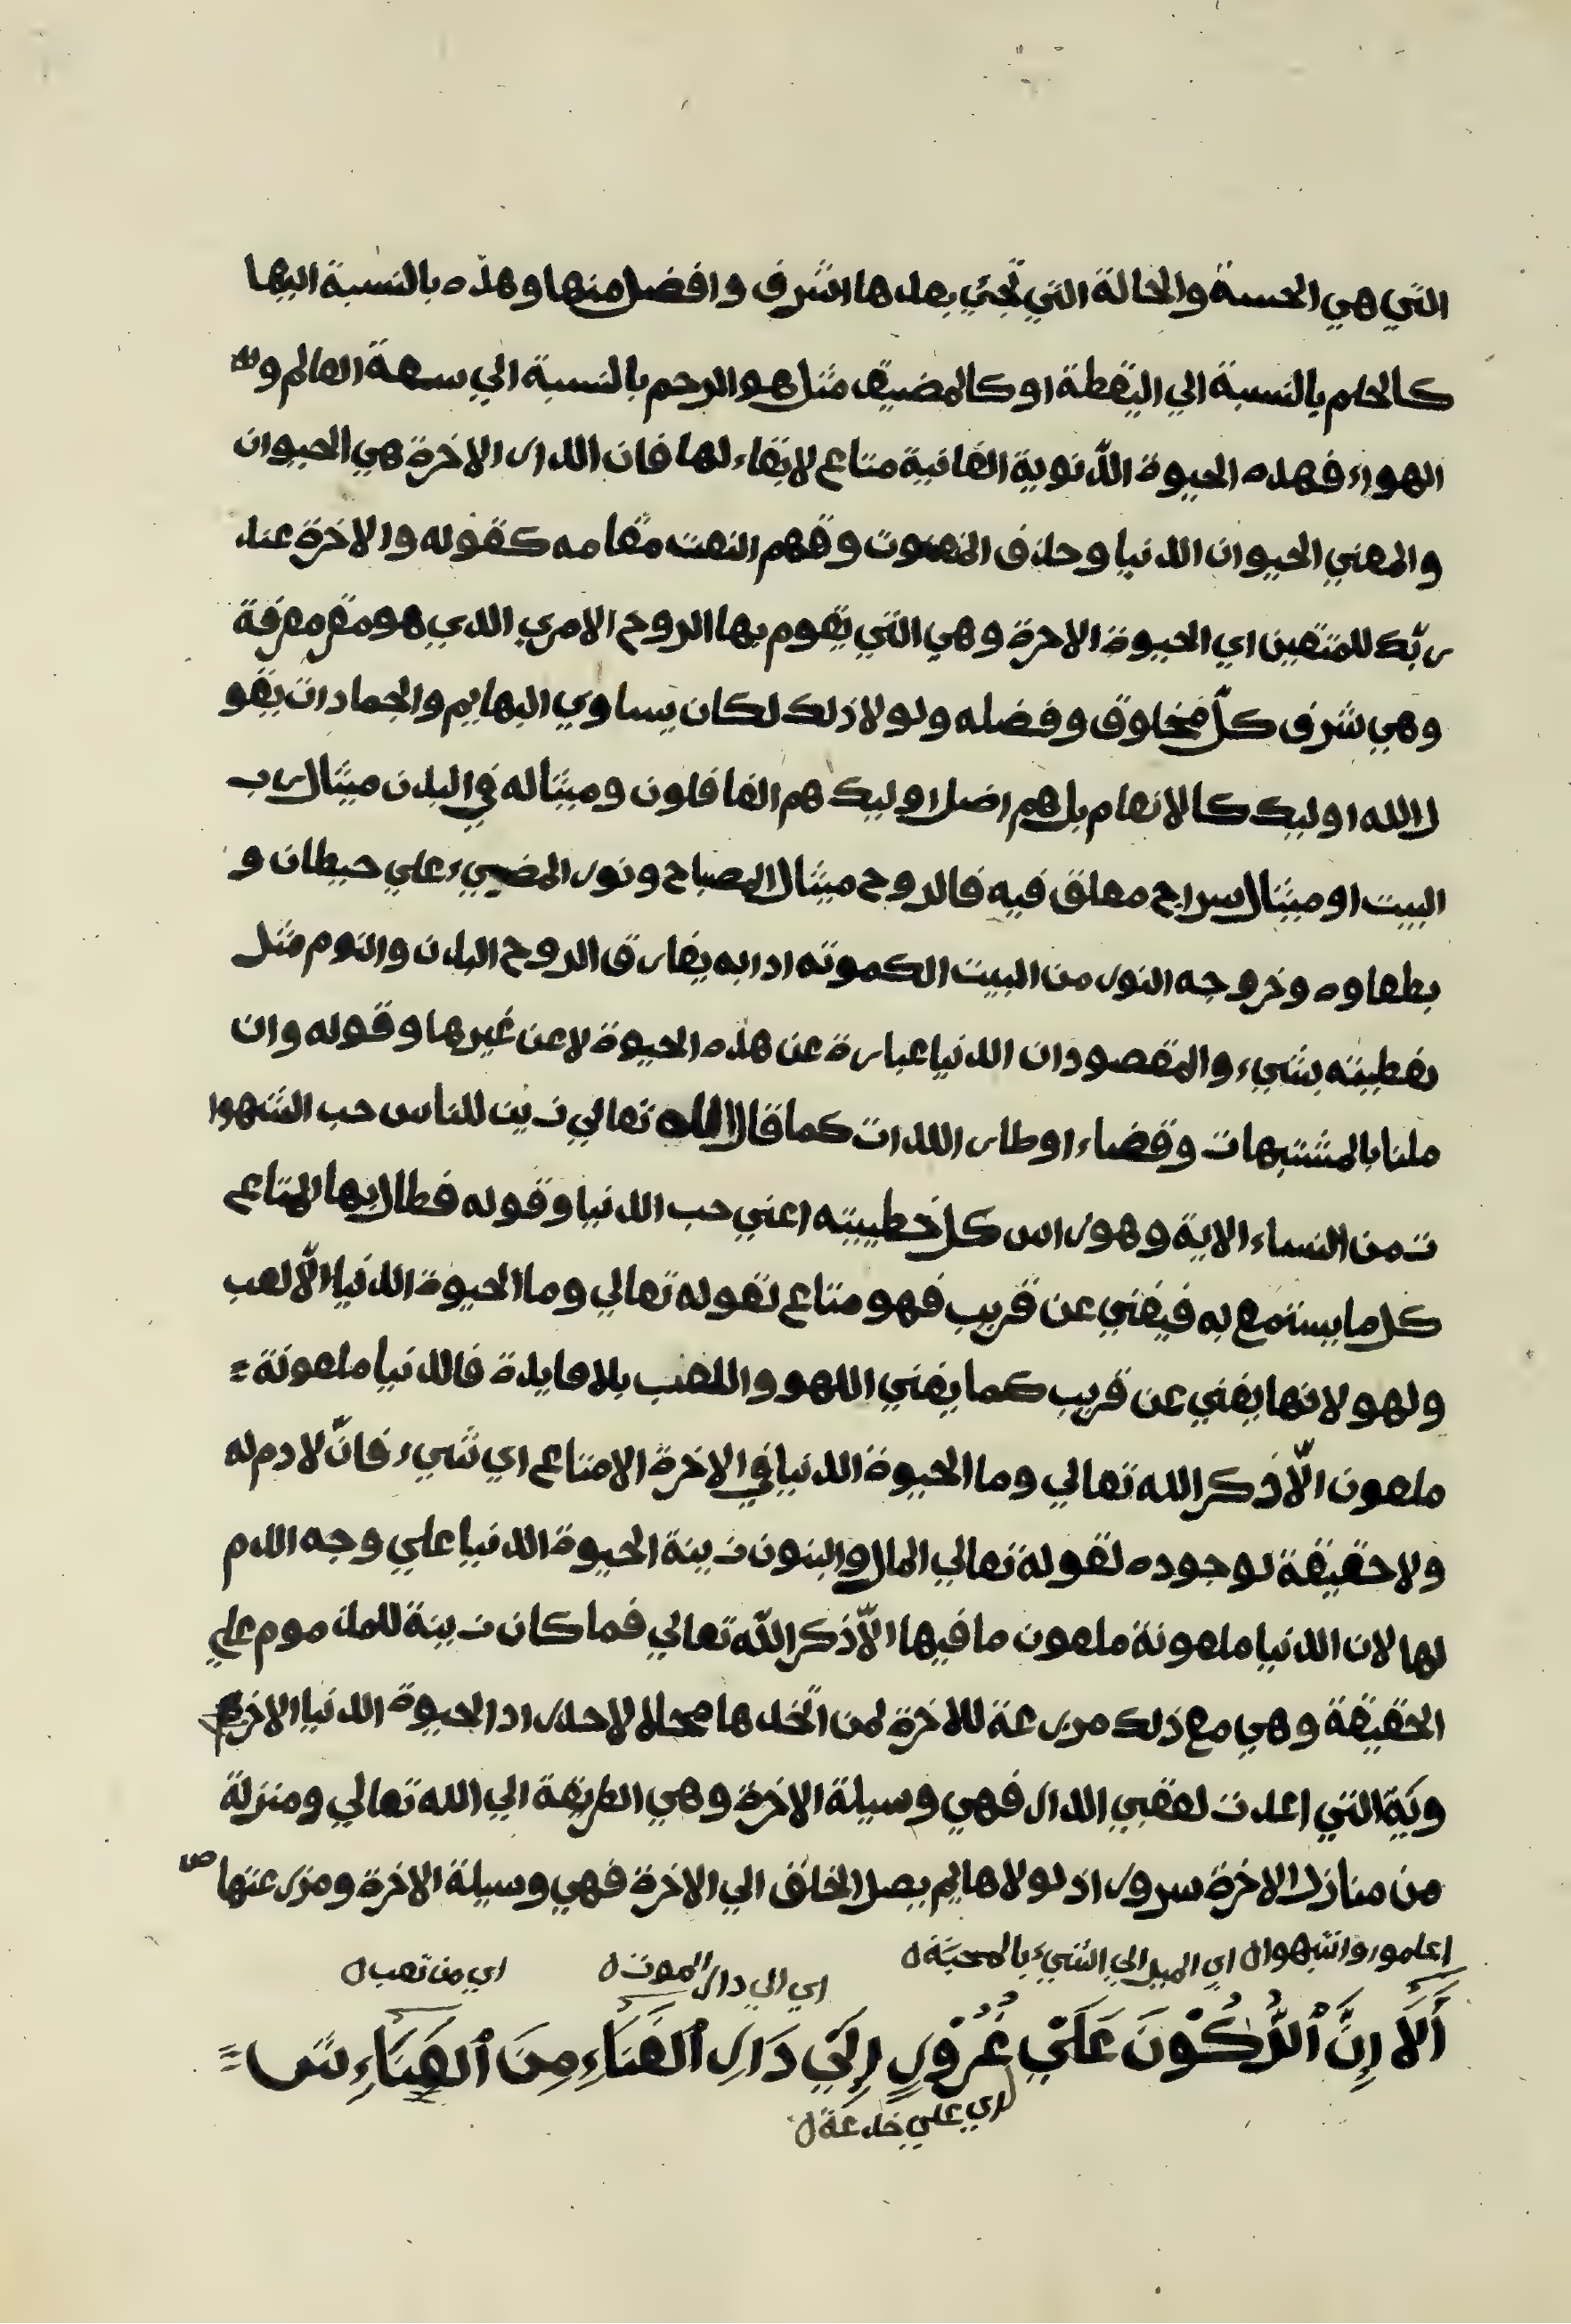 التي هي الحسنة والحالة التي تجيء بعدها اشرف وافضل منها وهذه بالنسبة اليها
كالحلم بالنسبة الي اليقظة او كالمضيق مثل هو الرحم بالنسبة الي سعة العالم و
الهواء فهذه الحيوة الدّنوية الفانية متاع لا بقاء لها فان الدار الاخرة هي الحيوان
والمعني الحيوان الدنيا وحذف المنعوت وقهم النعت مقامه كقوله والاخرة عند
ربّك للمتقين اي الحيوة الاخرة وهي التي يقوم بها الروح الامري الذي هو مقر معرفة
وهي شرف كلّ مخلوق وفضله ولولا ذلك لكان يساوي البهايم والجمادات بقو
ل الله اوليك كالانعام بل هم اضل اوليك هم الغافلون ومثاله في البدن مثال رب
البيت او مثال سراج معلق فيه فالروح مثال المصباح ونور المضيء علي حيطان و
بطفاوه وخروجه النور من البيت الكموته اذا به يفارق الروح البدن والنوم مثل
تغطيته بشيء والمقصود ان الدنيا عبارة عن هذه الحيوة لا عن غيرها وقوله وان
ملنا بالمشتبهات وقضاء اوطار اللذات كما قال الله تعالي زين للناس حب الشهوا
ت من النساء الاية وهو راس كل خطيئته اعني حب الدنيا وقوله فطال بها المتاع
كل ما يستمع به فيفني عن قريب فهو متاع لقوله تعالي وما الحيوة الدنيا الّا لعب
ولهو لانها يفني عن قريب كما يفني اللهو واللعب بلا فايدة فالدنيا ملعونة
ملعون الّا ذكر الله تعالي وما الحيوة الدنيا في الاخرة الا متاع اي شيء فانّ لا دم له
ولا حقيقة لوجوده لقوله تعالي المال والبنون زينة الحيوة الدنيا علي وجه الدم
لها لان الدنيا ملعونة ملعون ما فيها الّا ذكر اللّه تعالي فما كان زينة للمذموم علي
الحقيقة وهي مع ذلك مزرعة للاخرة لمن اتّخذها محلا لا حذر اد الحيوة الدنيا الاخر
ويّة التي اعدت لعقبي الدار فهي وسيلة الاخرة وهي الطريقة الي الله تعالي ومنزلة
من منازل الاخرة سرور اذ لولاها لم يصل الخلق الي الاخرة فهي وسيلة الاخرة ومزرعتها ص
اعلموا وانتبهوا اي الميل الي الشيء بالمحبّة اي الي دار الموت اي من تعب
أَلَا إِنَّ ٱلرُّكُوْنَ عَلَيْ غُرُوْرٍ إِلَيْ دَارِ ٱلفَنَاءِ مِنَ ٱلعَنَاءِ ش
اي علي خدعة